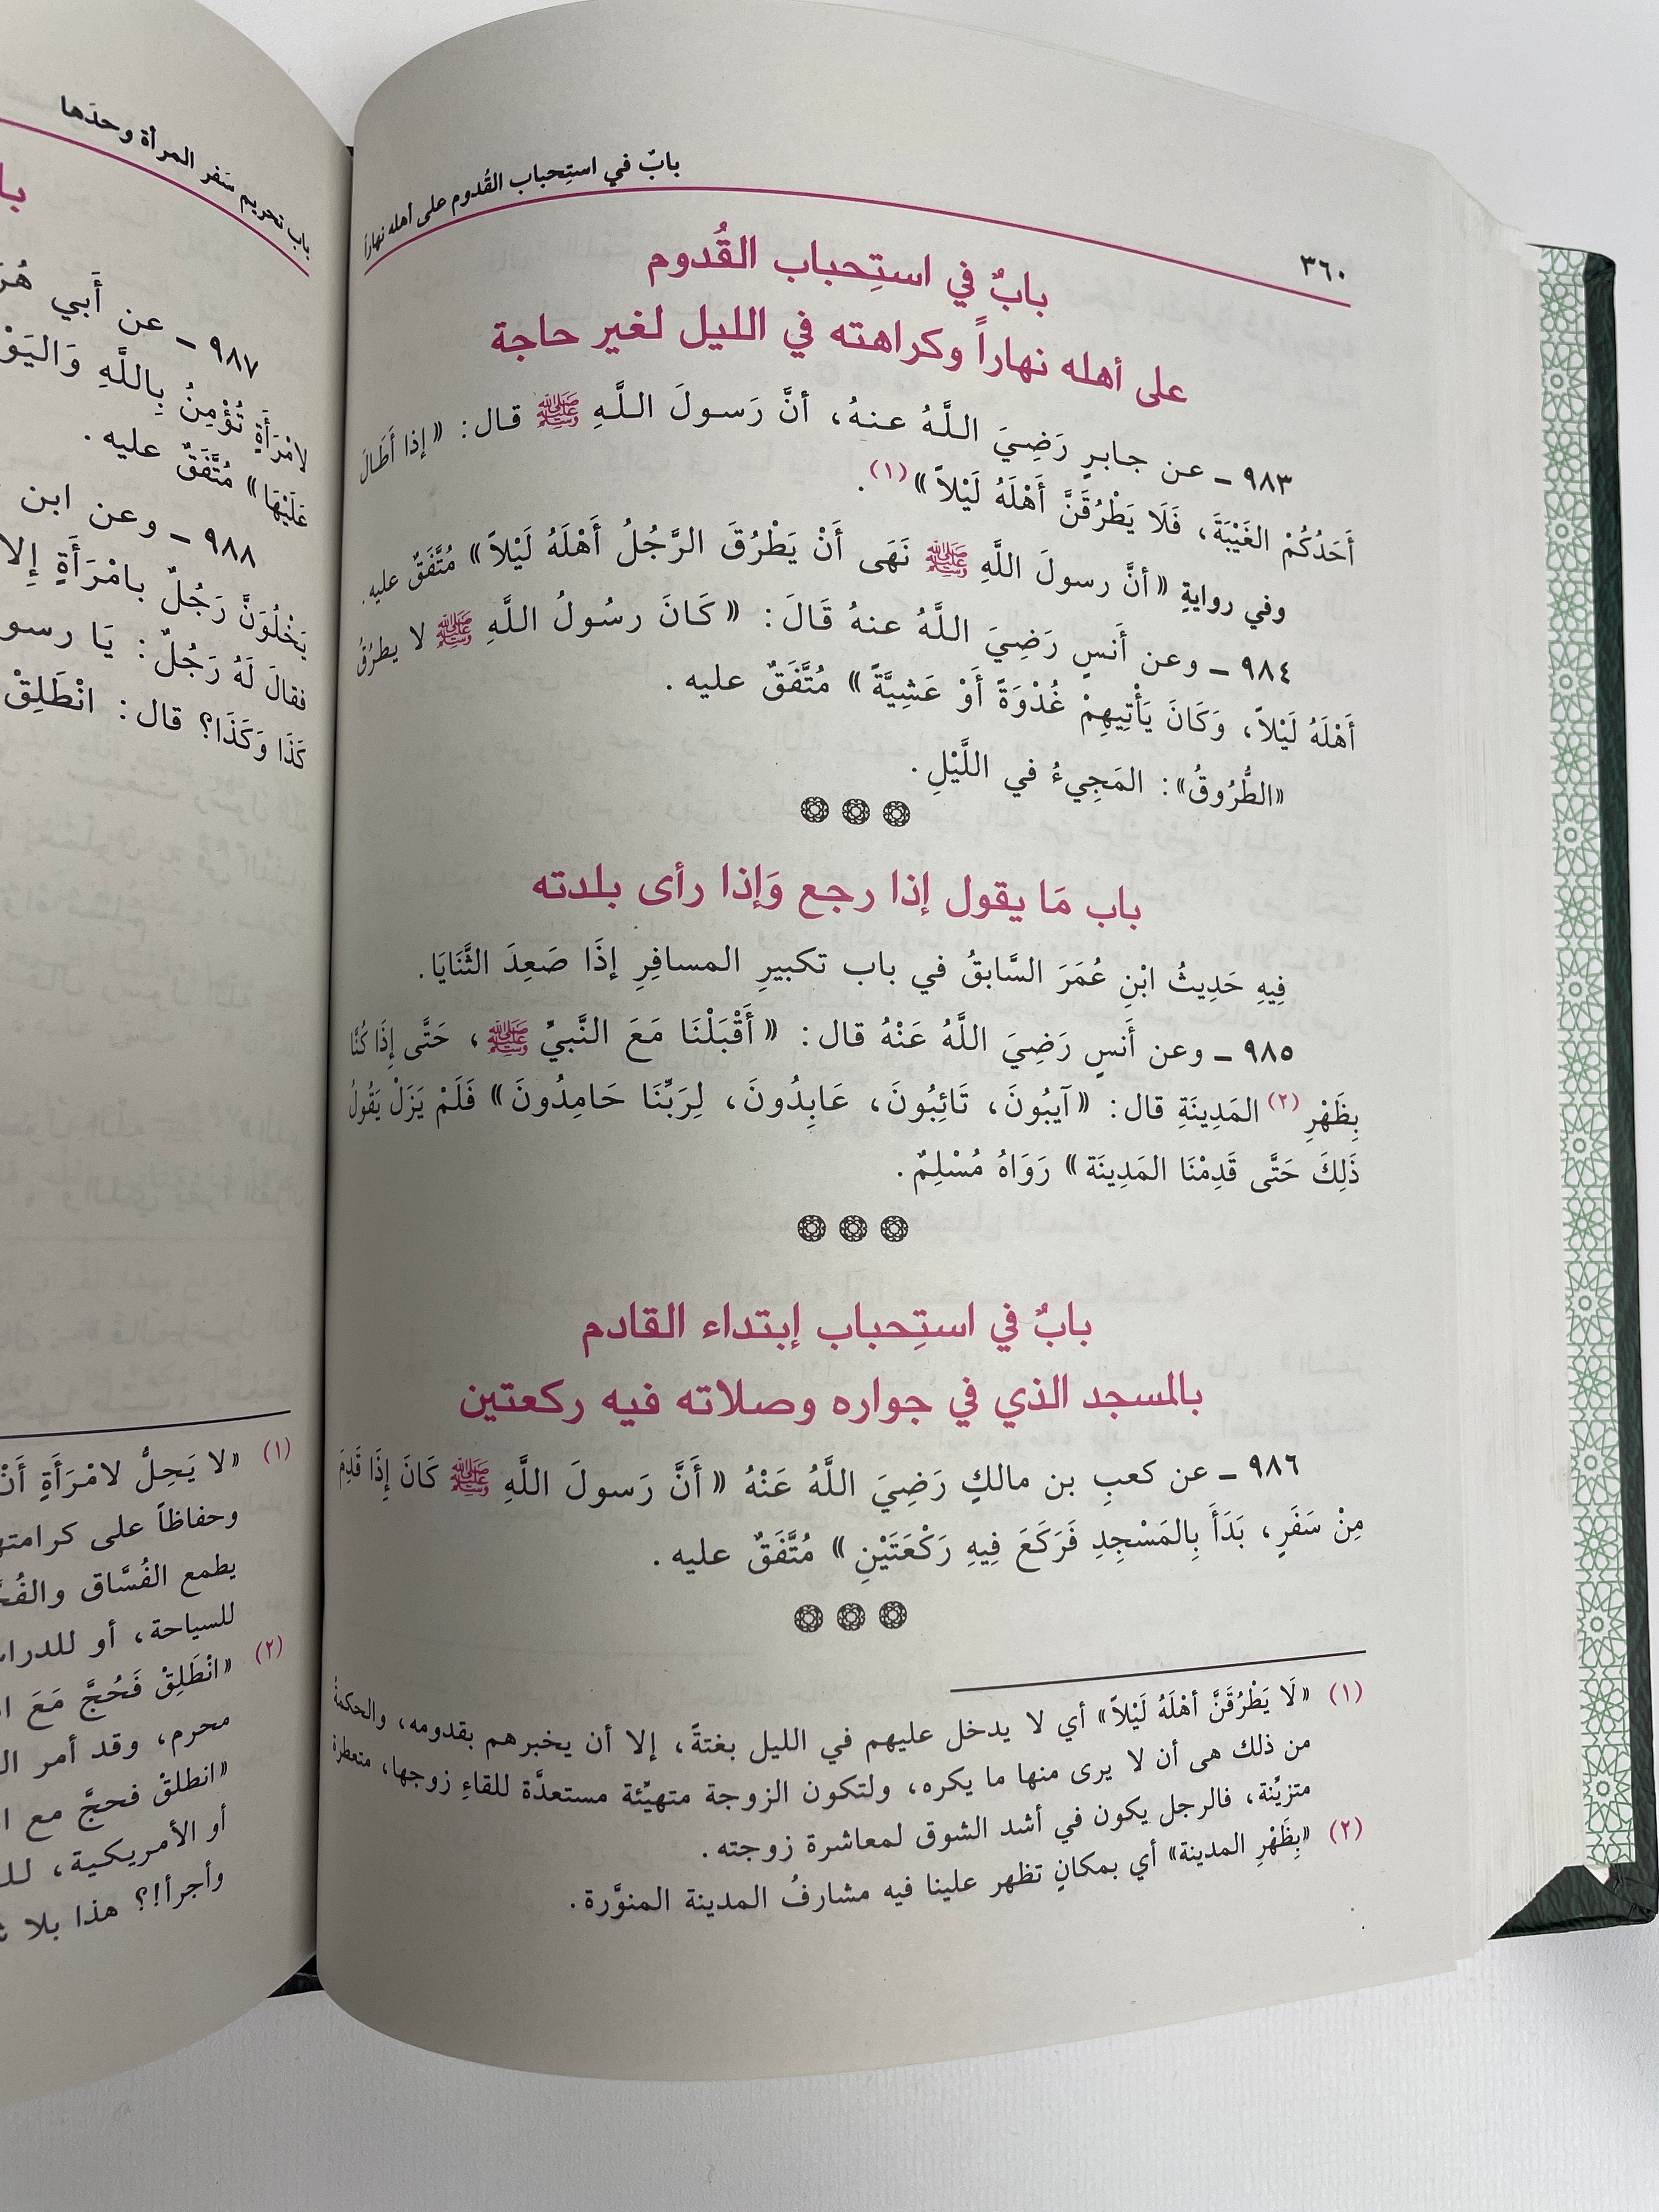 بابٌ في استِحباب القُدوم على أهله نهاراً
٣٦٠
بابٌ في استِحباب القُدوم
على أهله نهاراً وكراهته في الليل لغير حاجة
٩٨٣ ـ عن جابرٍ رَضِيَ اللَّهُ عنهُ، أنَّ رَسولَ اللَّهِ ﷺ قال: «إذا أَطَالَ
أَحَدُكُمْ الغَيْبَةَ، فَلَا يَطْرُقَنَّ أَهْلَهُ لَيْلاً»(١).
وفي روايةٍ «أنَّ رسولَ اللَّهِ ﷺ نَهَى أَنْ يَطْرُقَ الرَّجُلُ أَهْلَهُ لَيْلاً» مُتَّفَقٌ عليه.
٩٨٤ ـ وعن أَنسٍ رَضِيَ اللَّهُ عنهُ قَالَ: «كَانَ رسُولُ اللَّهِ ﷺ لا يطرُقُ
أَهْلَهُ لَيْلاً، وَكَانَ يَأْتِيهِمْ غُدْوَةً أَوْ عَشِيَّةً» مُتَّفَقٌ عليه.
«الطُّرُوقُ»: المَجِيءُ في اللَّيْلِ.
باب مَا يقول إذا رجع وَإذا رأى بلدته
فِيهِ حَدِيثُ ابْنِ عُمَرَ السَّابقُ في باب تكبيرِ المسافِرِ إذَا صَعِدَ الثَّنَايَا.
٩٨٥ ـ وعن أَنسٍ رَضِيَ اللَّهُ عَنْهُ قال: «أَقْبَلْنَا مَعَ النَّبيِّ ﷺ، حَتَّى إِذَا كُنَّا
بِظَهْرِ(٢) المَدِينَةِ قال: «آيبُونَ، تَائِبُونَ، عَابِدُونَ، لِرَبِّنَا حَامِدُونَ» فَلَمْ يَزَلْ يَقُولُ
ذَلِكَ حَتَّى قَدِمْنَا المَدِينَة» رَوَاهُ مُسْلِمٌ.
بابٌ في استِحباب إبتداء القادم
بالمسجد الذي في جواره وصلاته فيه ركعتين
٩٨٦ ـ عن كعبِ بن مالكٍ رَضِيَ اللَّهُ عَنْهُ «أَنَّ رَسولَ اللَّهِ ﷺ كَانَ إِذَا قَدِمَ
مِنْ سَفَرٍ، بَدَأَ بِالمَسْجِدِ فَرَكَعَ فِيهِ رَكْعَتَيْنِ» مُتَّفَقٌ عليه.
(١) «لَا يَطْرُقَنَّ أهْلَهُ لَيْلاً» أي لا يدخل عليهم في الليل بغتةً، إلا أن يخبرهم بقدومه، والحكمةُ
من ذلك هى أن لا يرى منها ما يكره، ولتكون الزوجة متهيِّئة مستعدَّة للقاءِ زوجها، متعطرة
متزيِّنة، فالرجل يكون في أشد الشوق لمعاشرة زوجته.
(٢) «بِظَهْرِ المدينة» أي بمكانٍ تظهر علينا فيه مشارفُ المدينة المنوَّرة.
باب تحريم سَفر المرأة وحدَها
٩٨٧ ـ عن أَبي
لامْرَأَةٍ تُؤْمِنُ بِاللَّهِ وَاليَوْ
عَلَيْهَا» مُتَّفَقٌ عليه.
٩٨٨ ـ وعن ابن
يَخْلُوَنَّ رَجُلٌ بامْرَأَةٍ إِلا
فقالَ لَهُ رَجُلٌ: يَا رسو
كَذَا وَكَذَا؟ قال: انْطَلِقْ
(١) «لا يَحِلُّ لامْرَأَةٍ أَنْ
وحفاظاً على كرامته
يطمع الفُسَّاق والفُ
للسياحة، أو للدرا
(٢) «انْطَلِقْ فَحُجَّ مَعَ ا
محرم، وقد أمر ال
«انطلقْ فحجَّ مع ا
أو الأمريكية، لل
وأجرأ!؟ هذا بلا